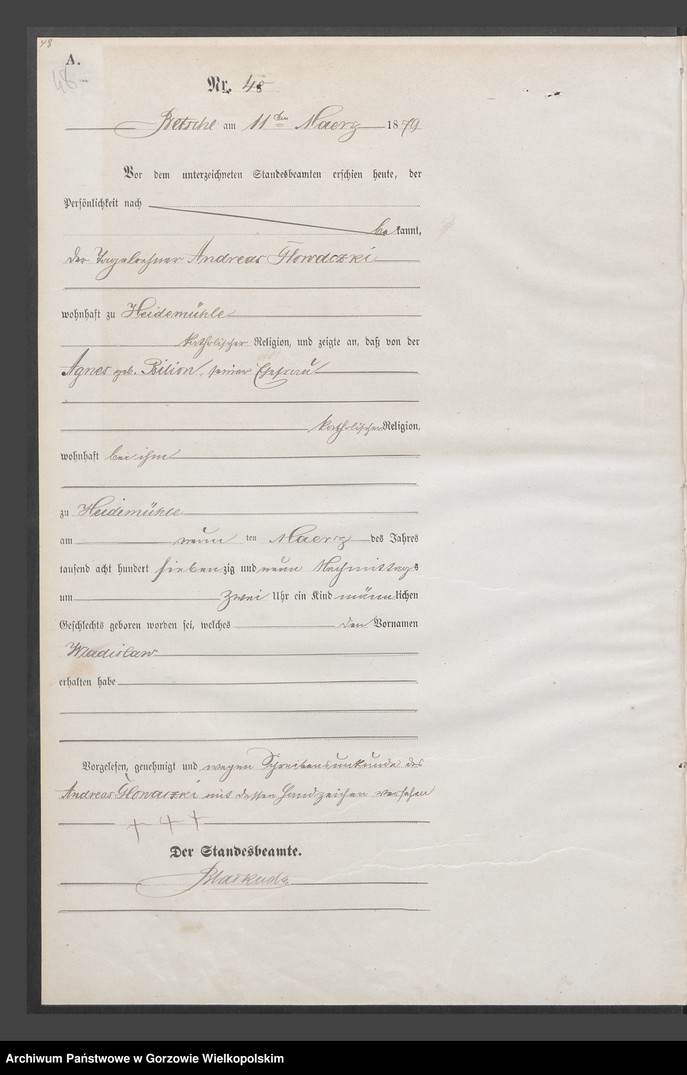 48
A.
48
Nr. 48
Betsche am 11ten Maerz 1879
Vor dem unterzeichneten Standesbeamten erschien heute, der
Persönlichkeit nach
be kannt,
der Tageloehner Andreas Glowaczki
wohnhaft zu Heidemühle
katholischer Religion, und zeigte an, daß von der
Agnes geb. Bilion, seiner Ehefrau
katholischer Religion,
wohnhaft bei ihm
zu Heidemühle
am neun ten Maerz des Jahres
tausend acht hundert siebenzig und neun Nachmittags
um zwei Uhr ein Kind männlichen
Geschlechts geboren worden sei, welches den Vornamen
Wladislaw
erhalten habe
Vorgelesen, genehmigt und wegen Schreibensunkunde des
Andreas Glowaczki mit dessen Handzeichen versehen
+ + +
Der Standesbeamte.
Archiwum Państwowe w Gorzowie Wielkopolskim